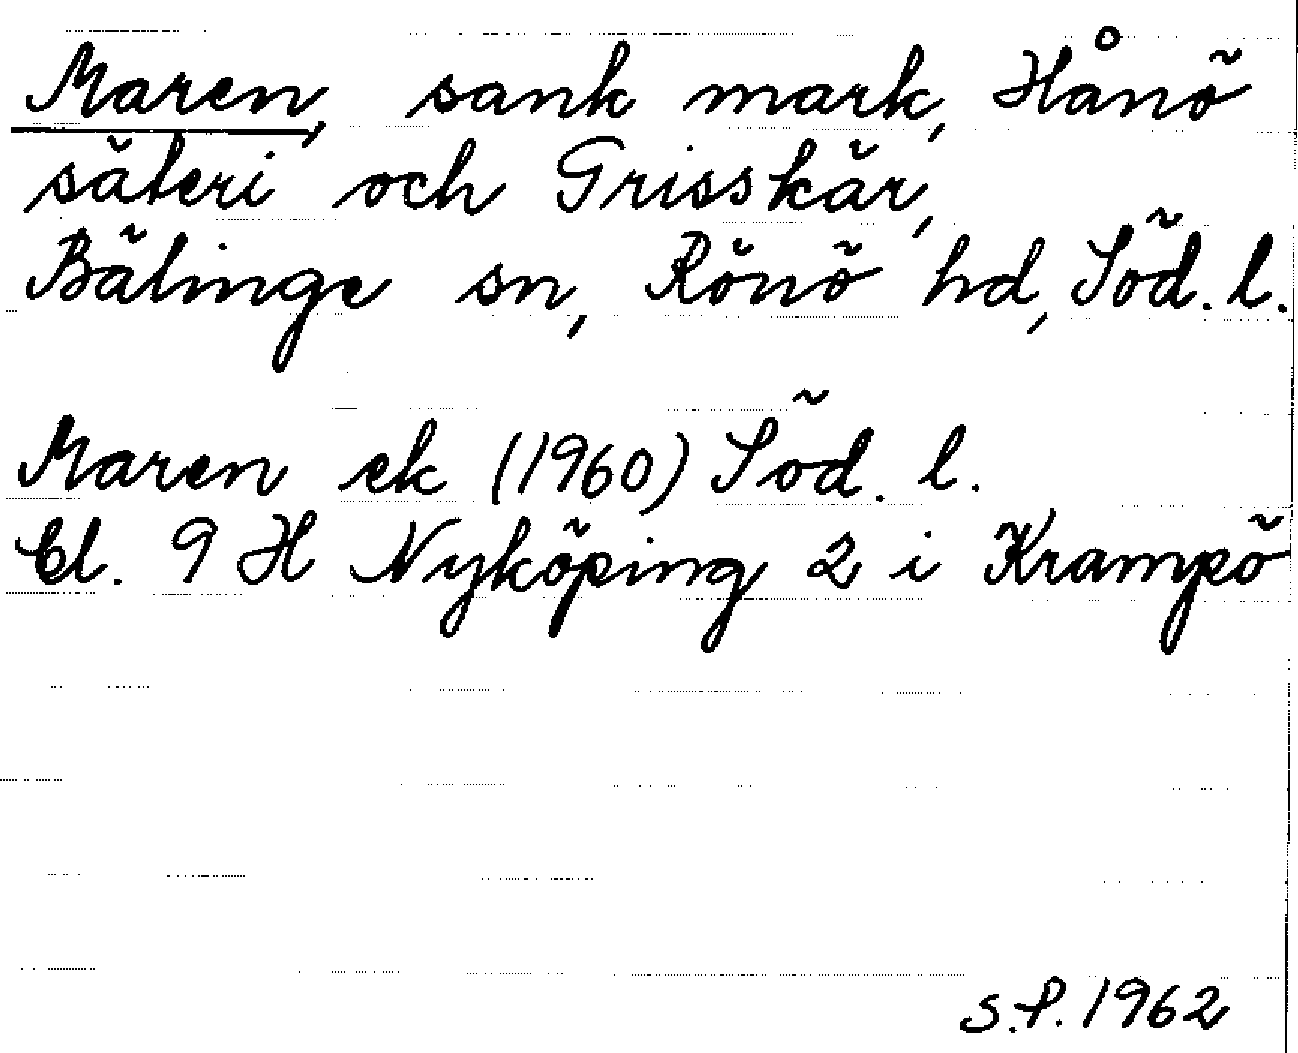 Maren, sank mark, Hånö
säteri och Grisskär,
Bälinge sn, Rönö hd, Söd. l.
Maren ek (1960) Söd. l.
Bl. 9 H Nyköping 2 i Krampö
S.P. 1962